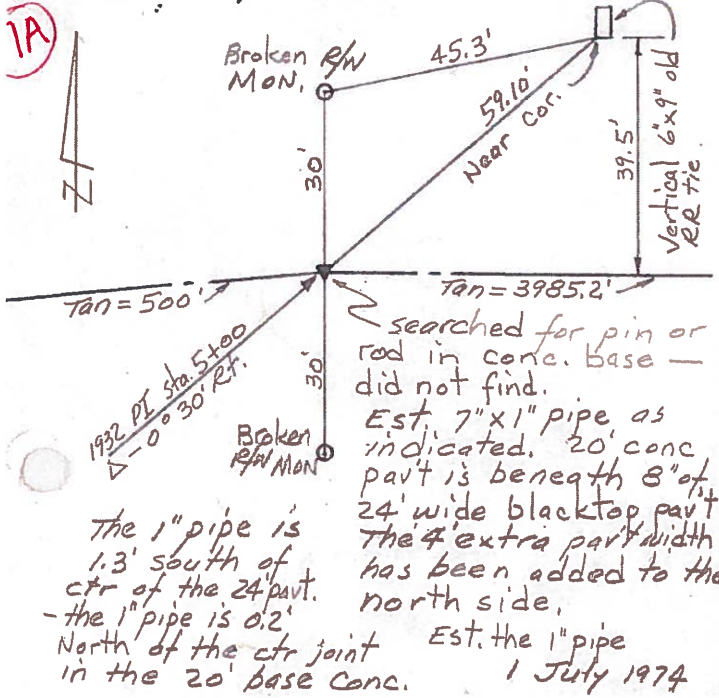 1A
Broken R/W
MON.
45.3'
59.10'
Near Cor.
39.5'
Vertical 6"x9" old
RR tie.
N
30'
Tan = 500'
Tan = 3985.2'
1932 PI sta. 5+00
Δ - 0° 30' Rt.
30'
Broken
R/W MON
searched for pin or
rod in conc. base —
did not find.
Est. 7" x 1" pipe as
indicated. 20' conc
pav't is beneath 8" of
24' wide blacktop pav't
The 4' extra pav't width
has been added to the
north side.
Est. the 1" pipe
1 July 1974
The 1" pipe is
1.3' south of
ctr of the 24' pavt.
- the 1" pipe is 0.2'
North of the ctr joint
in the 20' base conc.